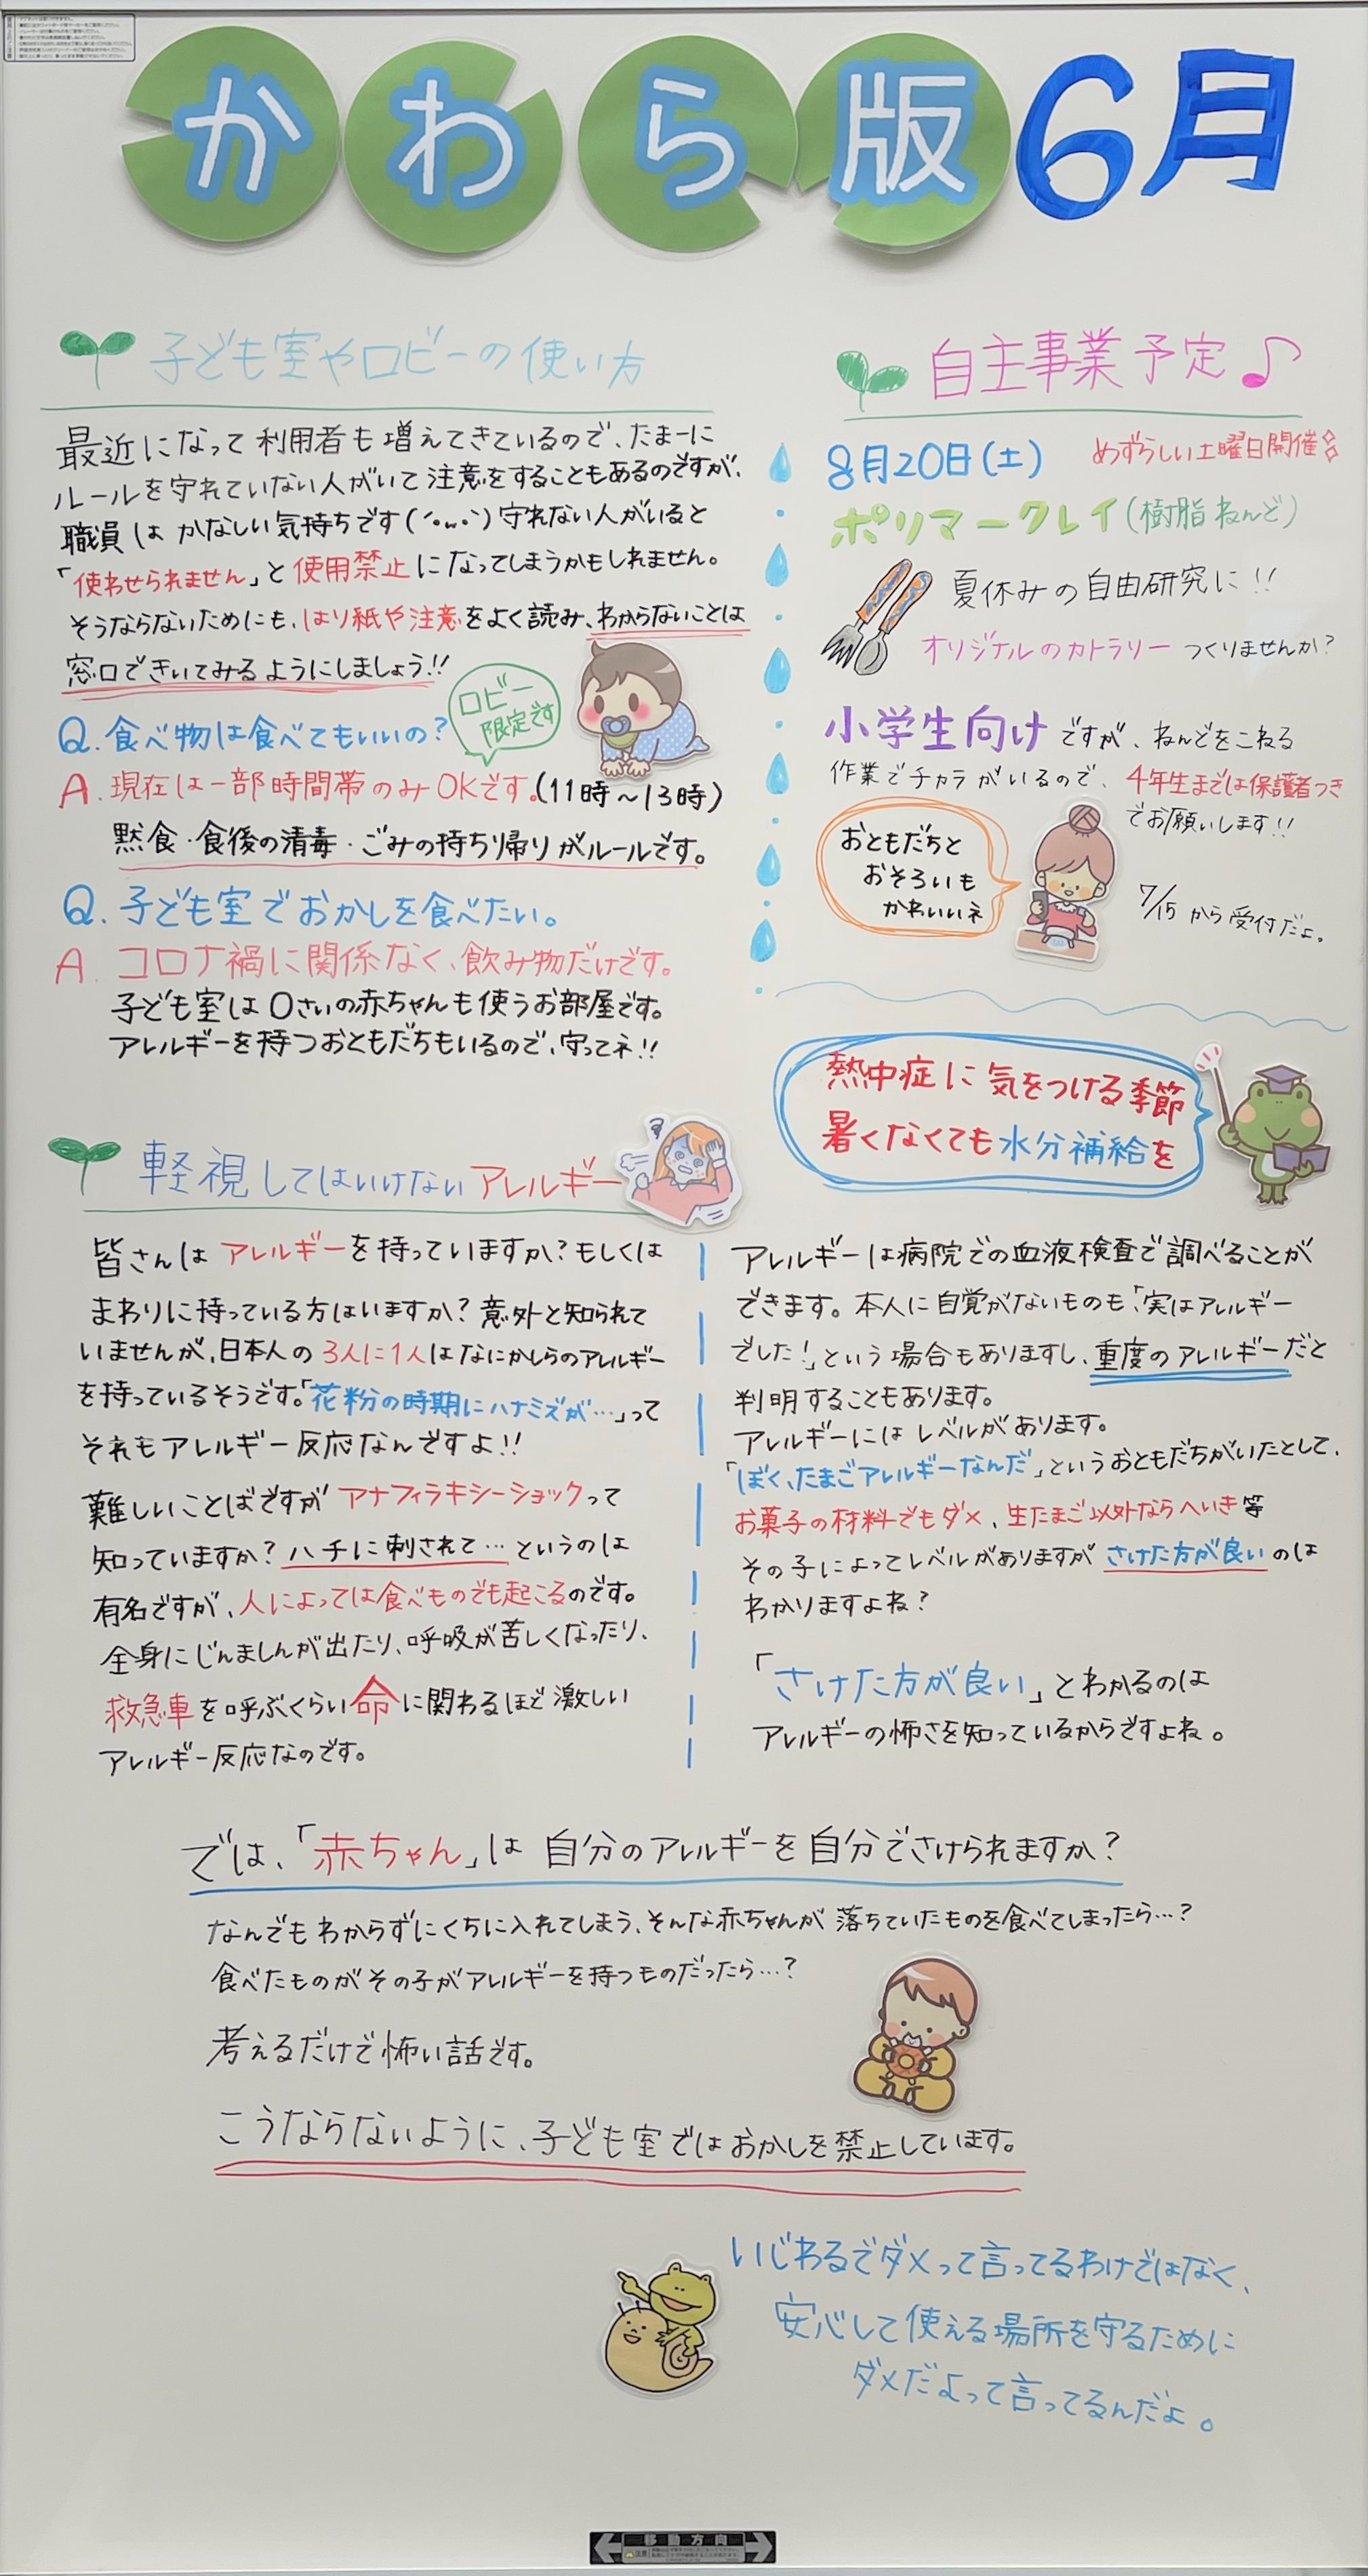 かわら版6月
子ども室やロビーの使い方
最近になって利用者も増えてきているので、たまーに
ルールを守れていない人がいて注意をすることもあるのですが、
職員はかなしい気持ちです(´･ω･`)守れない人がいると
「使わせられません」と使用禁止になってしまうかもしれません。
そうならないためにも、はり紙や注意をよく読み、わからないことは
窓口できいてみるようにしましょう!!
Q.食べ物は食べてもいいの?
ロビー
限定です
A.現在は一部時間帯のみOKです。(11時～13時)
黙食・食後の清毒・ごみの持ち帰りがルールです。
Q.子ども室でおかしを食べたい。
A.コロナ禍に関係なく、飲み物だけです。
子ども室は0さいの赤ちゃんも使うお部屋です。
アレルギーを持つおともだちもいるので、守ってネ!!
自主事業予定♪
8月20日(土)
めずらしい土曜日開催
ポリマークレイ(樹脂ねんど)
夏休みの自由研究に!!
オリジナルのカトラリーつくりませんか?
小学生向けですが、ねんどをこねる
作業でチカラがいるので、4年生までは保護者つき
でお願いします!!
おともだちと
おそろいも
かわいいネ
7/15から受付だよ。
熱中症に気をつける季節
暑くなくても水分補給を
軽視してはいけないアレルギー
皆さんはアレルギーを持っていますか?もしくは
まわりに持っている方はいますか?意外と知られて
いませんが、日本人の3人に1人はなにかしらのアレルギー
を持っているそうです。「花粉の時期にハナミズが…」って
それもアレルギー反応なんですよ!!
難しいことばですがアナフィラキシーショックって
知っていますか?ハチに刺されて…というのは
有名ですが、人によっては食べものでも起こるのです。
全身にじんましんが出たり、呼吸が苦しくなったり、
救急車を呼ぶくらい命に関わるほど激しい
アレルギー反応なのです。
アレルギーは病院での血液検査で調べることが
できます。本人に自覚がないものも、「実はアレルギー
でした!」という場合もありますし、重度のアレルギーだと
判明することもあります。
アレルギーにはレベルがあります。
「ぼく、たまごアレルギーなんだ」というおともだちがいたとして、
お菓子の材料でもダメ、生たまご以外ならへいき等
その子によってレベルがありますがさけた方が良いのは
わかりますよね?
「さけた方が良い」とわかるのは
アレルギーの怖さを知っているからですよね。
では、「赤ちゃん」は自分のアレルギーを自分でさけられますか?
なんでもわからずにくちに入れてしまう、そんな赤ちゃんが落ちていたものを食べてしまったら…?
食べたものがその子がアレルギーを持つものだったら…?
考えるだけで怖い話です。
こうならないように、子ども室ではおかしを禁止しています。
いじわるでダメって言ってるわけではなく、
安心して使える場所を守るために
ダメだよって言ってるんだよ。
移動方向